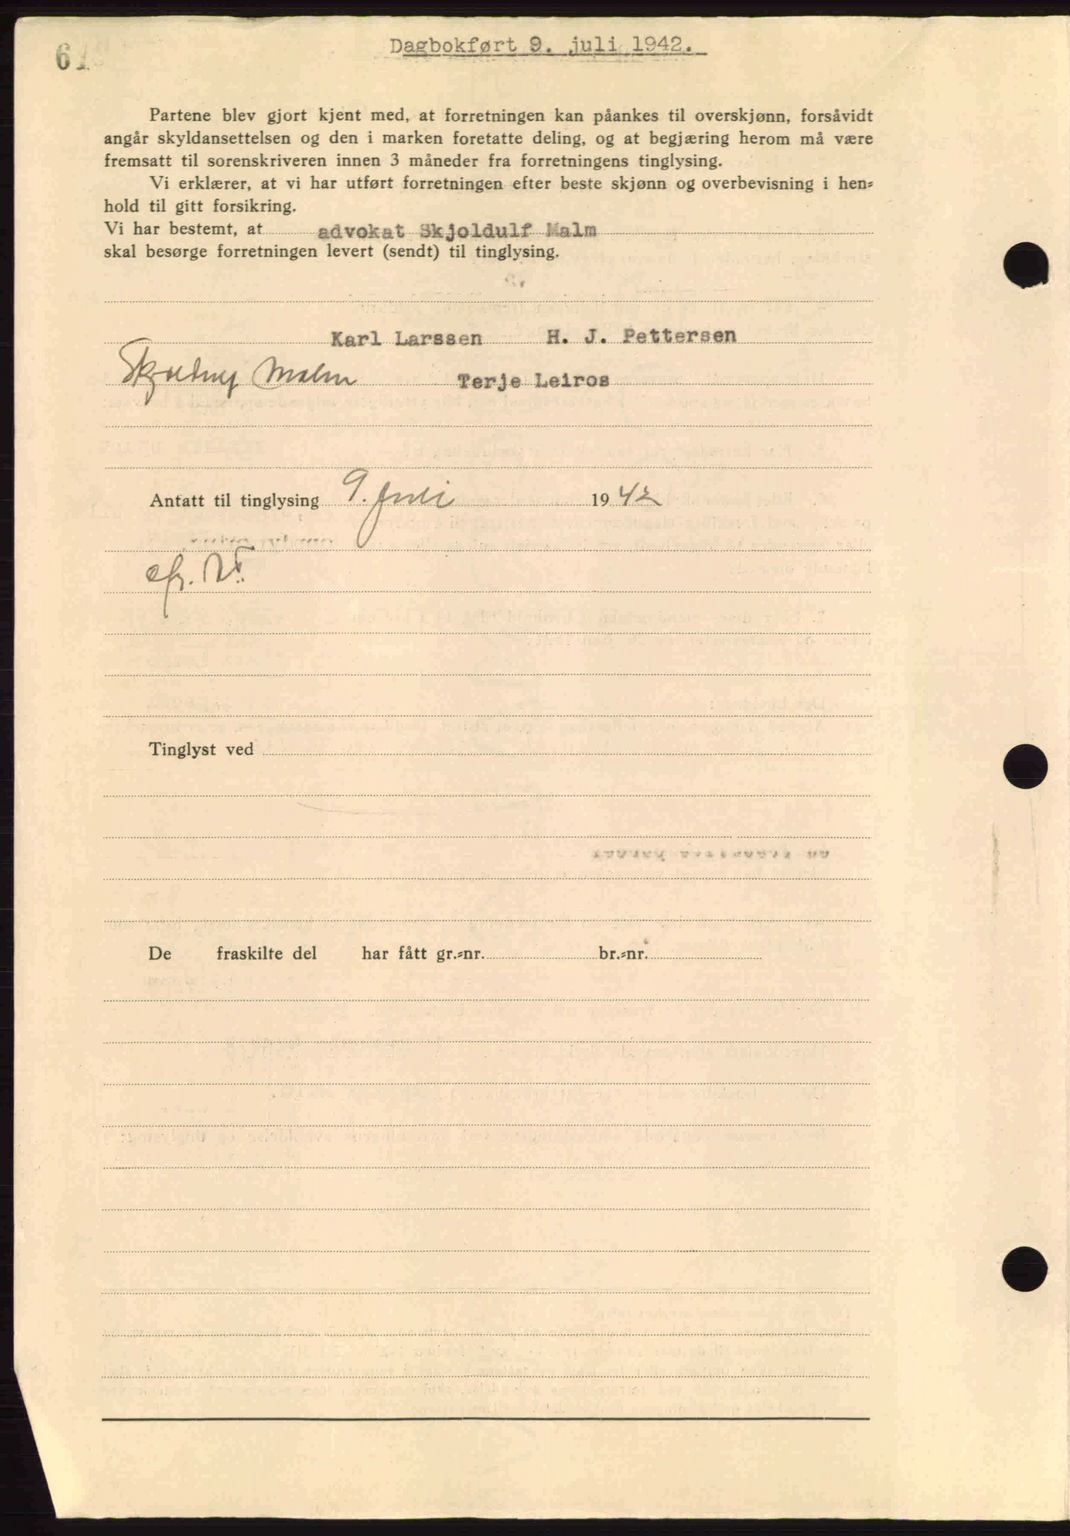 Dagbokført 9. juli 1942.
61
Partene blev gjort kjent med, at forretningen kan påankes til overskjønn, forsåvidt
angår skyldansettelsen og den i marken foretatte deling, og at begjæring herom må være
fremsatt til sorenskriveren innen 3 måneder fra forretningens tinglysing.
Vi erklærer, at vi har utført forretningen efter beste skjønn og overbevisning i hen-
hold til gitt forsikring.
Vi har bestemt, at advokat Skjoldulf Malm
skal besørge forretningen levert (sendt) til tinglysing.
Karl Larssen H. J. Pettersen
Skjoldulf Malm Terje Leiros
Antatt til tinglysing 9. juli 1942
Tinglyst ved
De fraskilte del har fått gr.-nr. br.-nr.